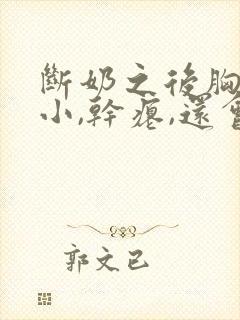 斷奶之後胸
小,幹癟,還會
郭文已